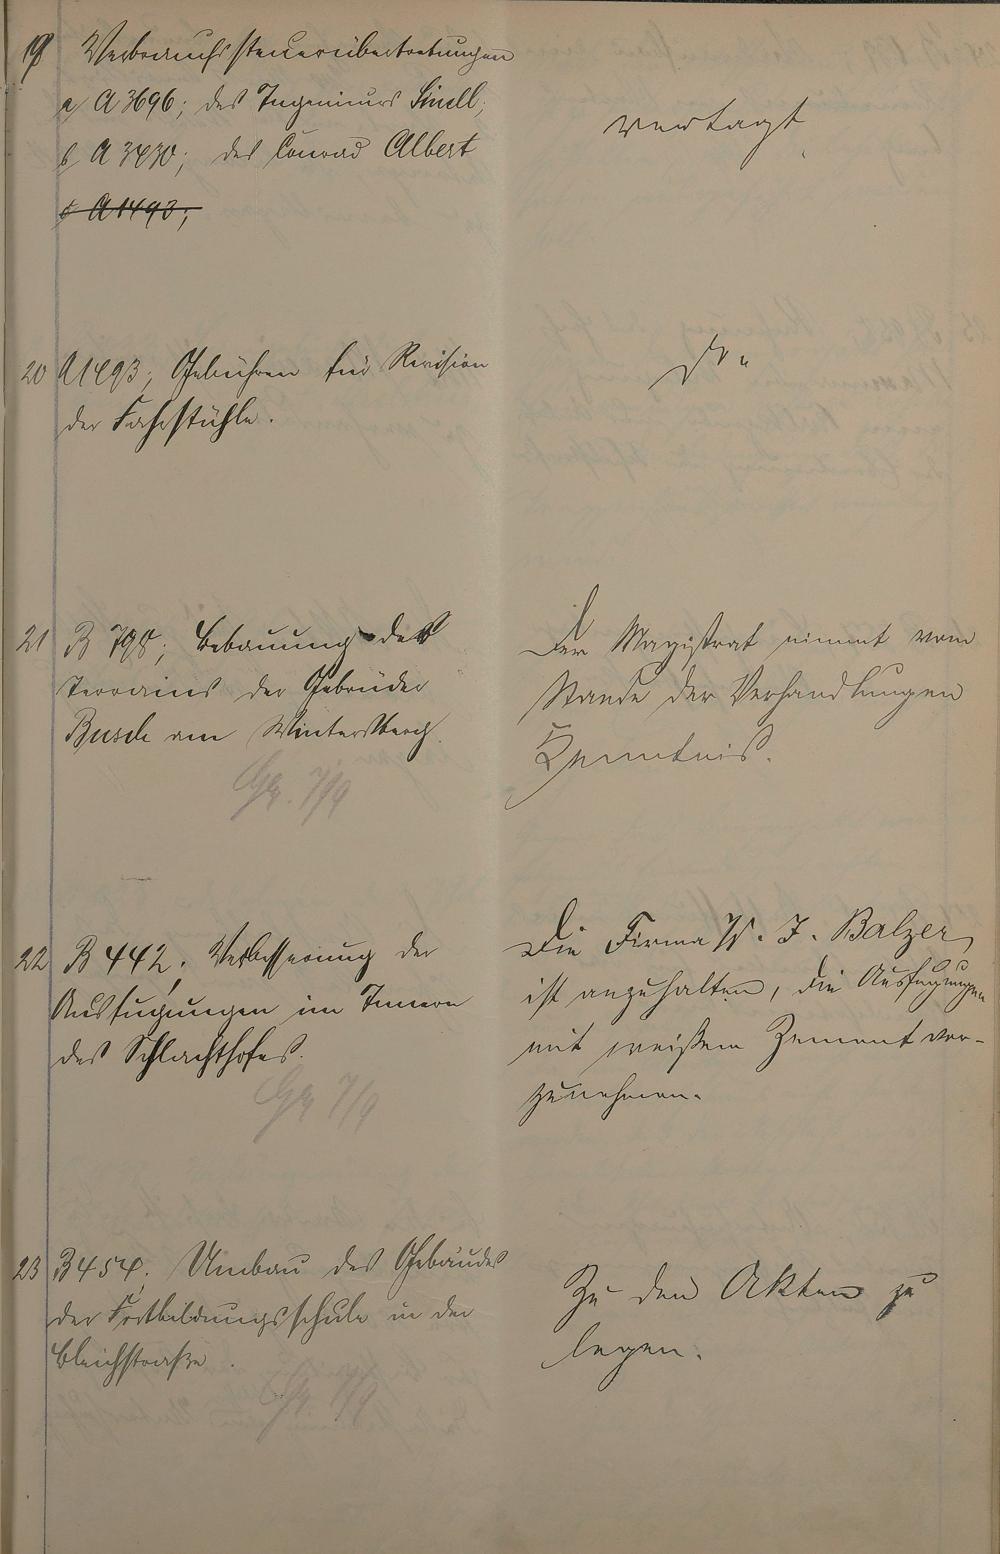 19 Verbrauchssteuerübertretungen
a) A 3696; des Ingenieurs Sinell;
b) A 3430; des Conrad Albert
c A 1493;
vertagt
20 A 1493; Gebühren für Revision
der Fahrstühle.
do.
21 B 798; Bebauung des
Terrains der Gebrüder
Busch am Wintersberg.
Gg. 7/9
Der Magistrat nimmt vom
Stande der Verhandlungen
Kenntnis.
22 B 442. Verbesserung der
Ausfugungen im Innern
des Schlachthofes.
7/9
Die Firma W. J. Balzer
ist anzuhalten, die Ausfugungen
mit weißem Zement vor-
zunehmen.
23 B 454. Umbau des Gebäudes
der Fortbildungsschule in der
Bleichstraße.
7/9
Zu den Akten zu
legen.